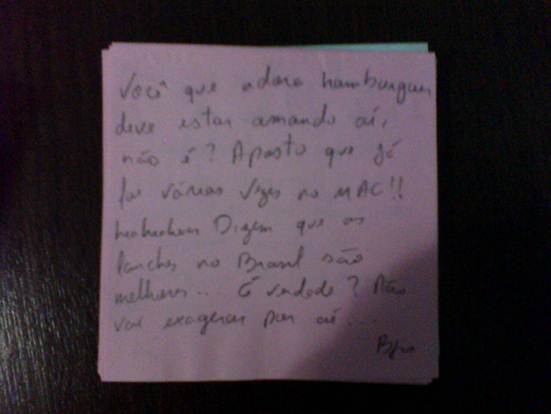 Você que adora hamburguer
deve estar amando aí,
não é? Aposto que já
foi várias vezes no MAC!!
hehehehe Dizem que os
lanches no Brasil são
melhores... É verdade? Não
vai exagerar por aí...
Bjus